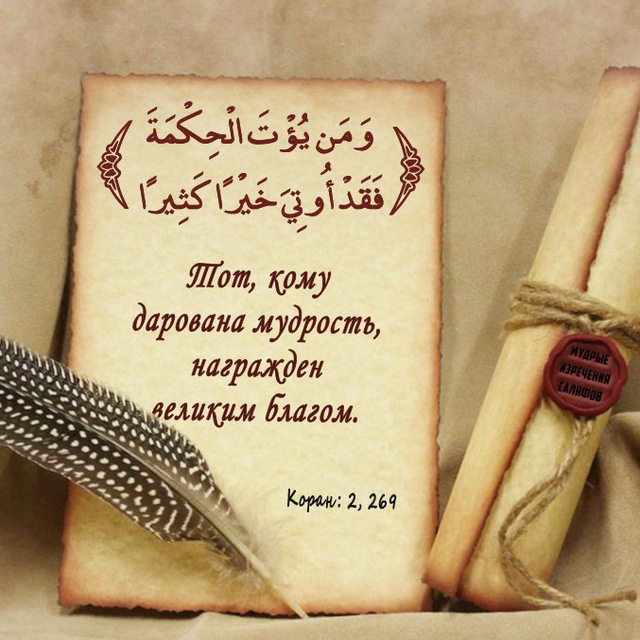 وَمَن يُؤْتَ الْحِكْمَةَ
فَقَدْ أُوتِيَ خَيْرًا كَثِيرًا
Тот, кому
дарована мудрость,
награжден
великим благом.
Коран: 2, 269
МУДРЫЕ
ИЗРЕЧЕНИЯ
САЛЯФОВ